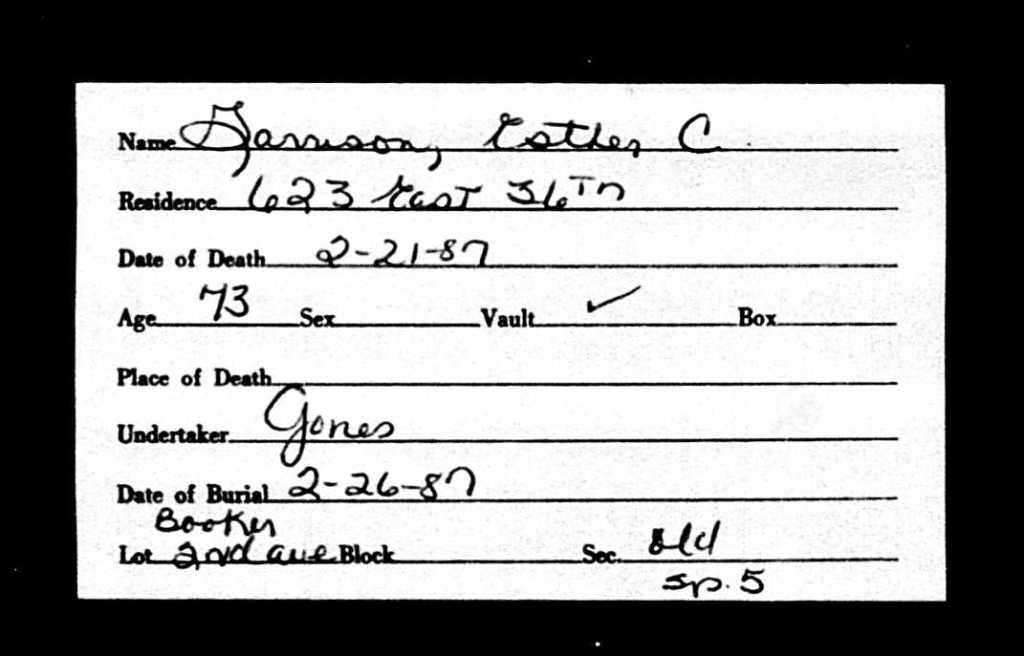 Name Garrison, Esther C.
Residence 623 East 36th
Date of Death 2-21-87
Age 73 Sex Vault ✓ Box
Place of Death
Undertaker Jones
Date of Burial 2-26-87
Booker
Lot 2nd ave Block Sec. old
sp. 5